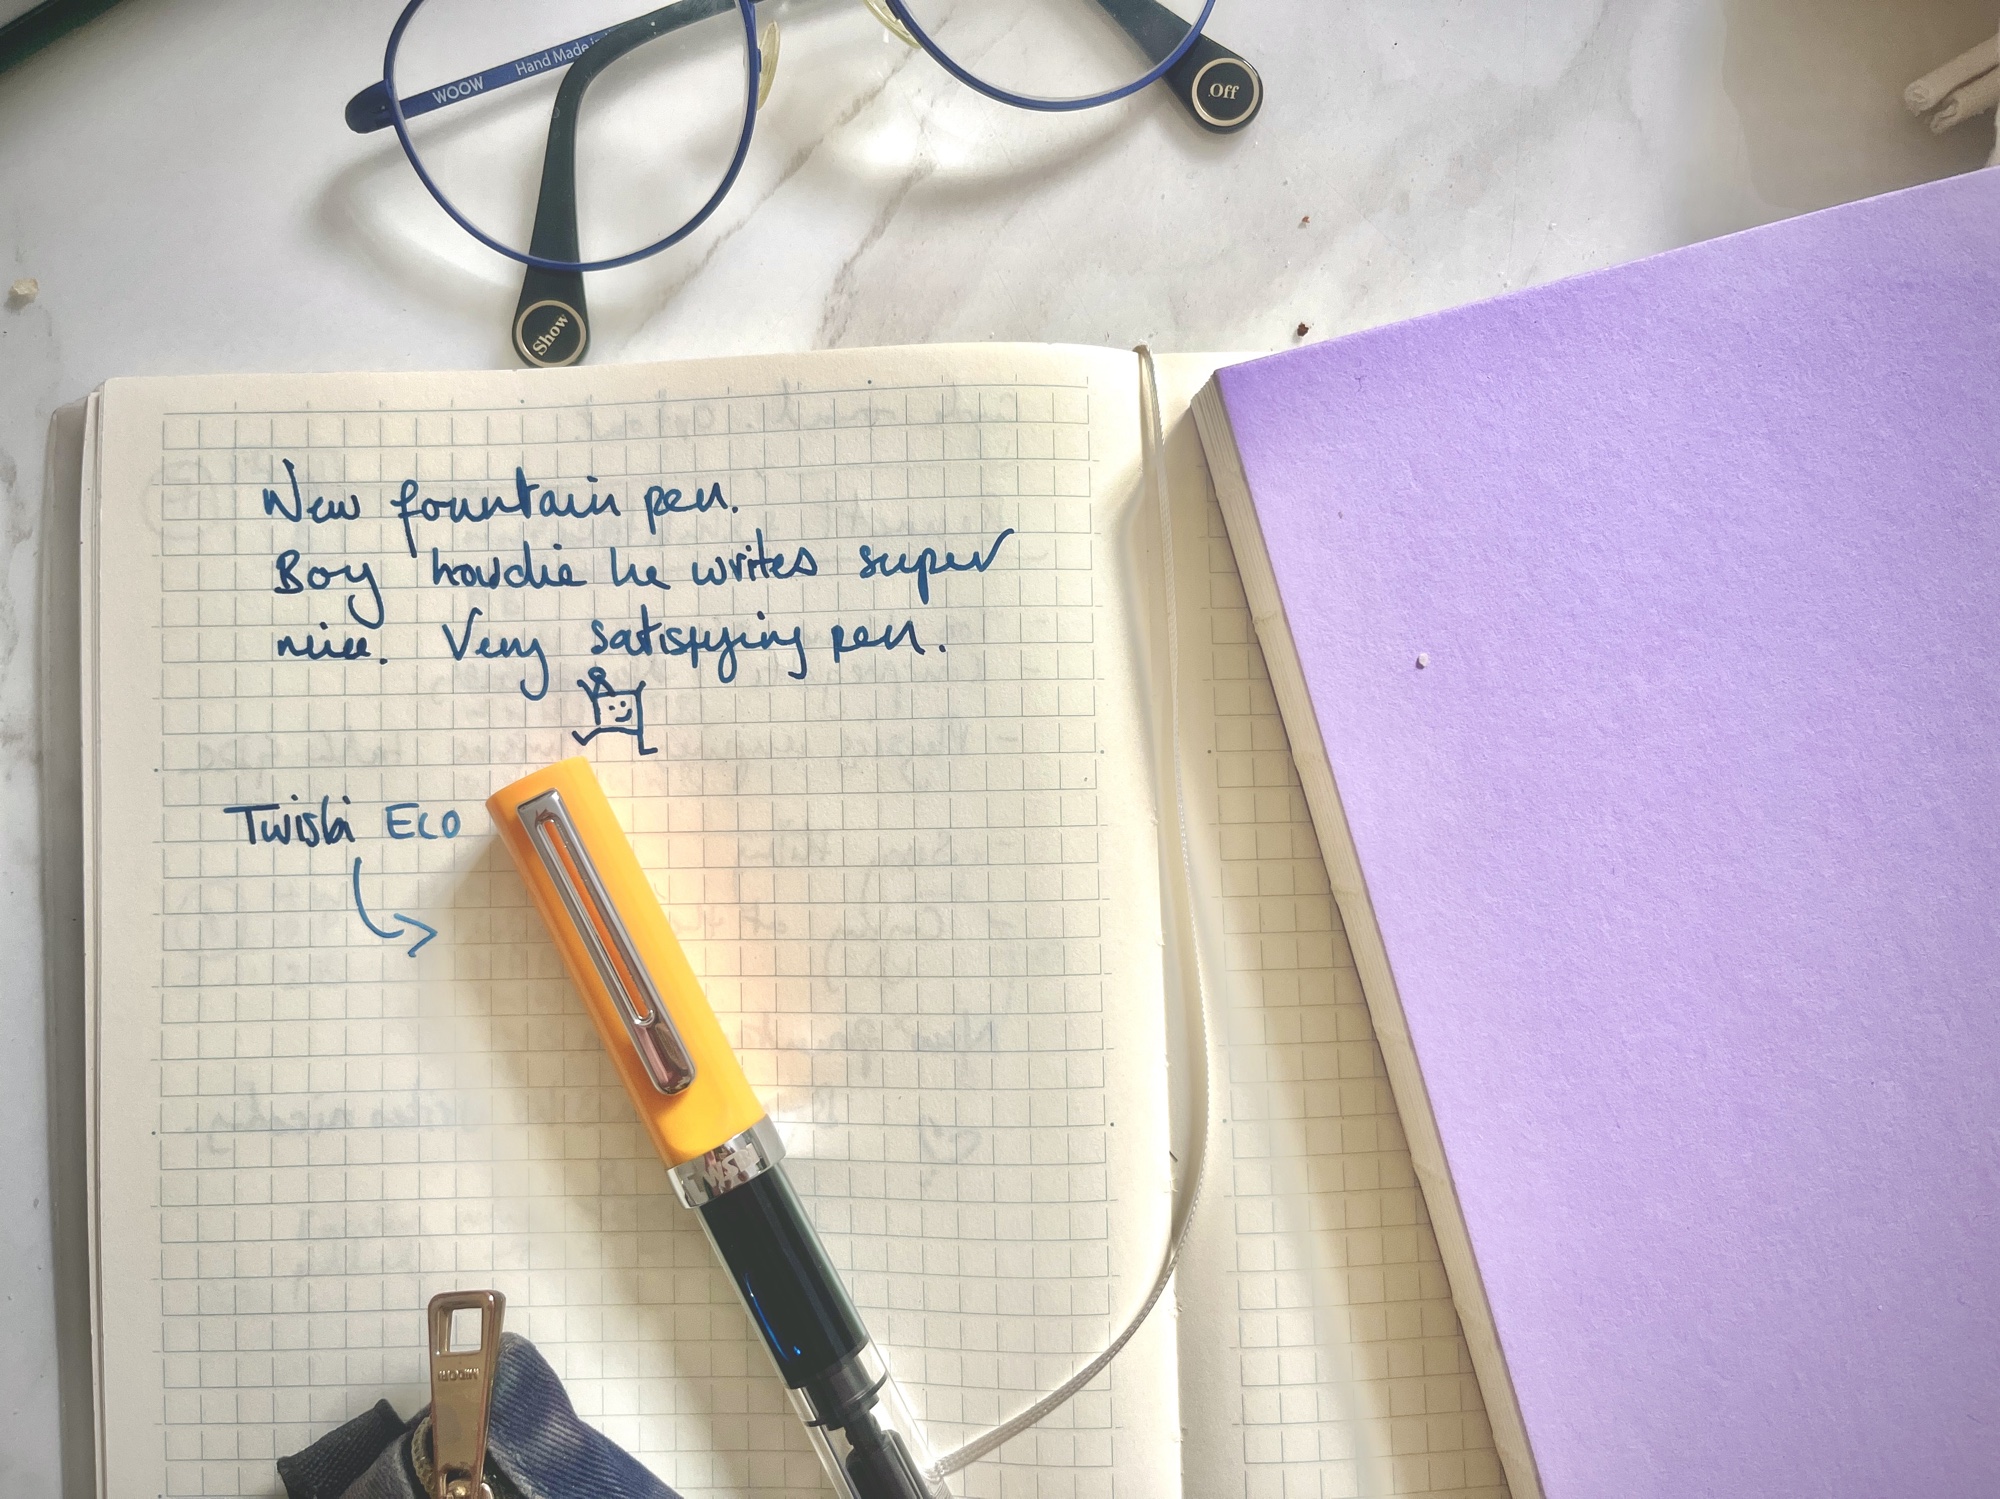 WOOW Hand Made in
Off
Show
New fountain pen.
Boy howdie he writes super
nice. Very satisfying pen.
Twisbi Eco
TWSBI